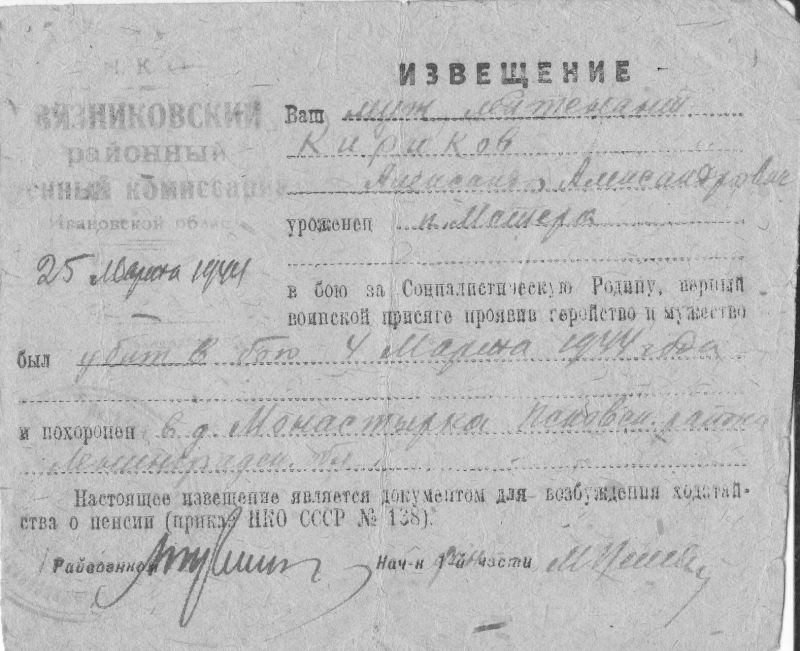 Н. К. О.
ВЯЗНИКОВСКИЙ
районный
военный комиссариат
Ивановской области
25 Марта 1944
ИЗВЕЩЕНИЕ
Ваш муж лейтенант
Кириков
Александр Александрович
уроженец п. Мстера
в бою за Социалистическую Родину, верный
воинской присяге проявив геройство и мужество
был убит в бою 4 Марта 1944 года
и похоронен в д. Монастырка Псковск. района
Ленинградск. обл
Настоящее извещение является документом для возбуждения ходатай-
ства о пенсии (приказ НКО СССР № 138).
Райвоенком
Нач-к 1-й части